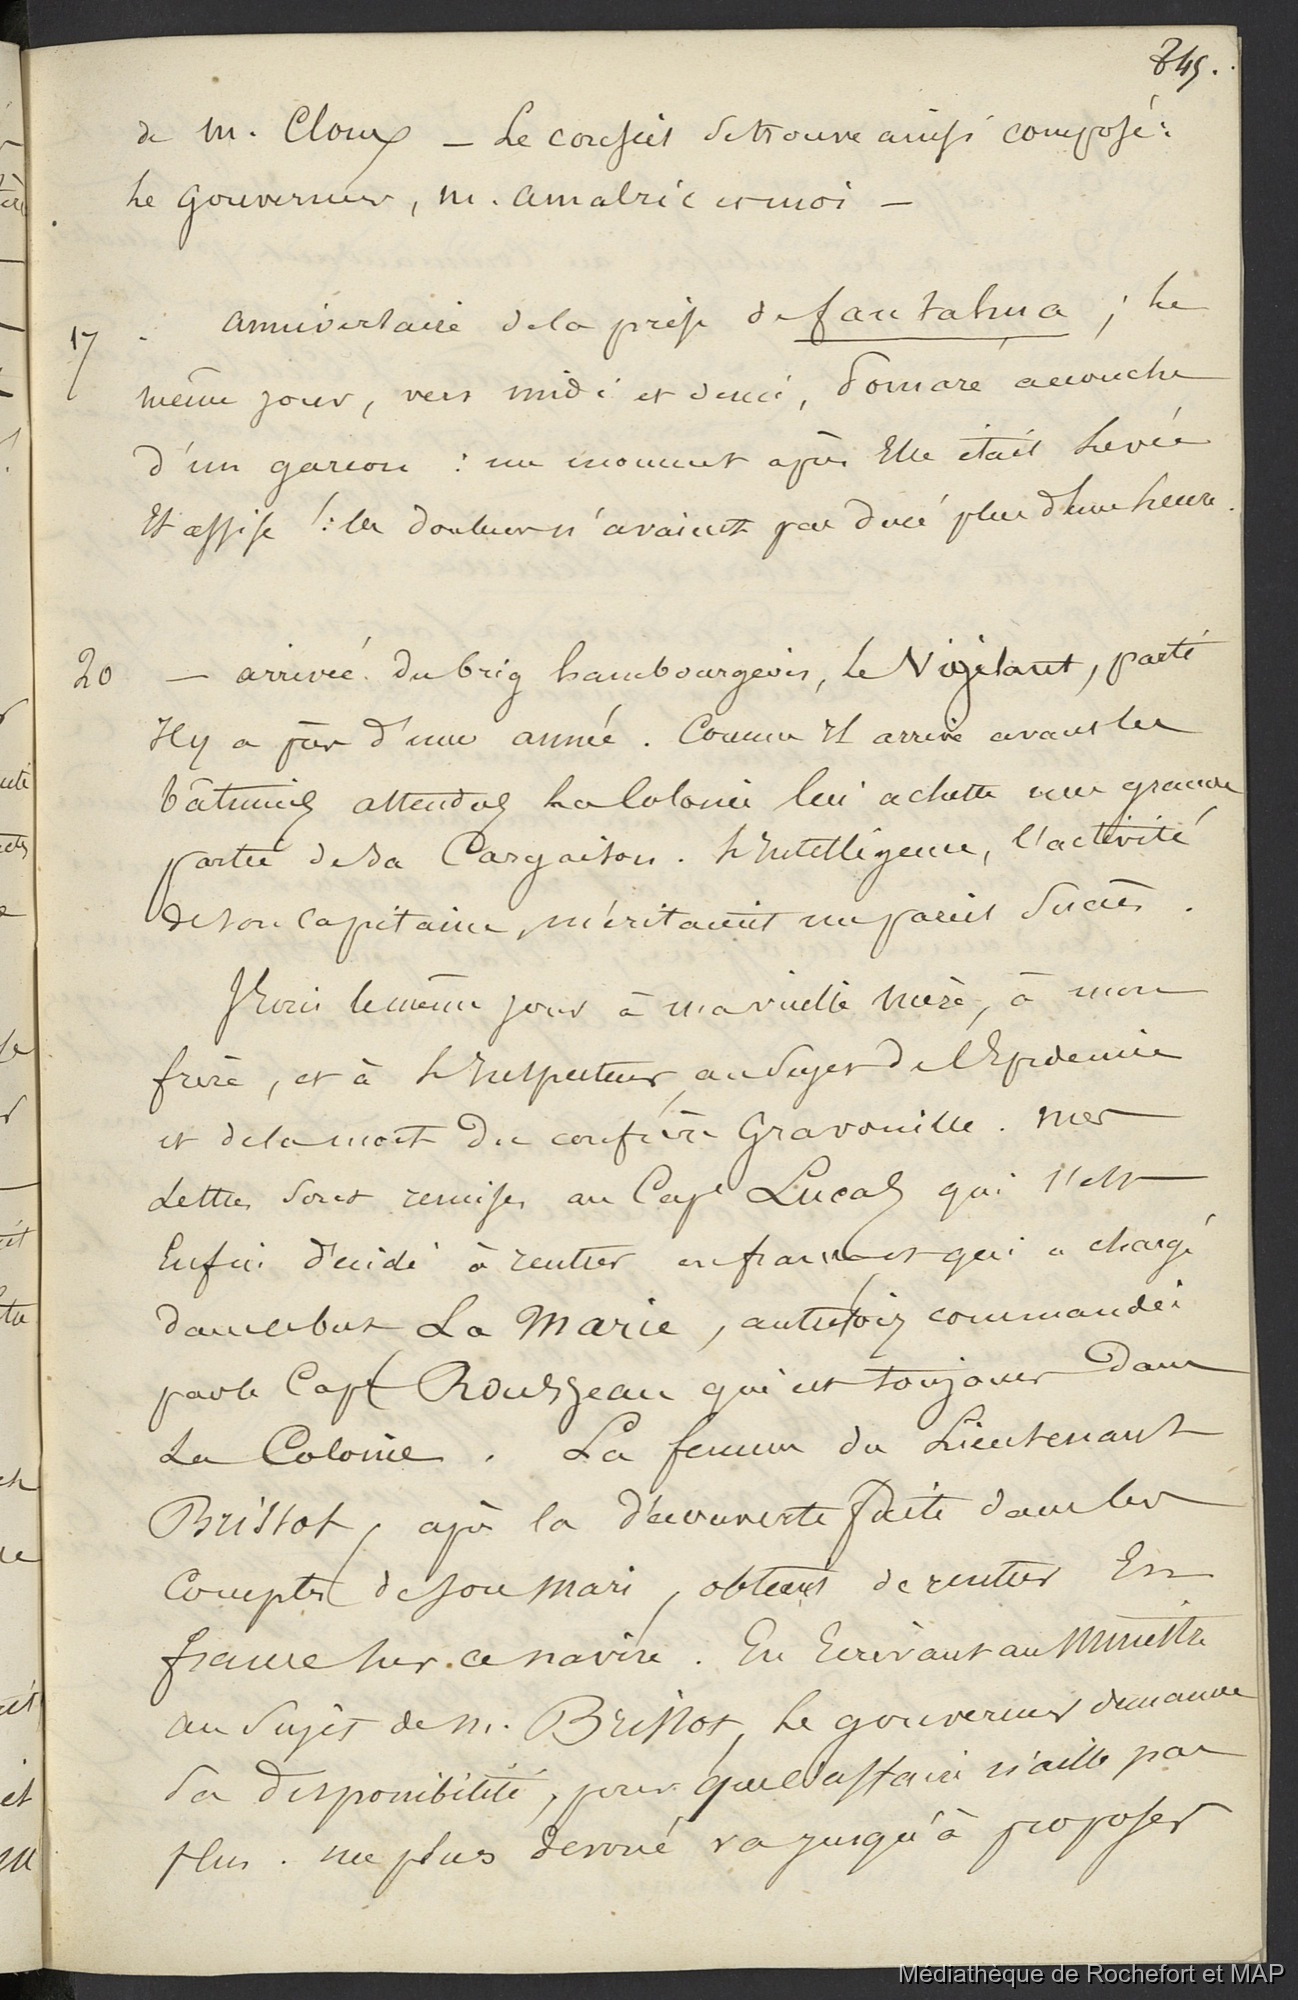 849.
de M. Cloux — Le conseil se trouve ainsi composé :
Le Gouverneur, M. Amalric et moi —
17 . anniversaire de la prise de fautahua ; Le
même jour, vers midi et demi, Pomaré accouche
d'un garcon : un moment après Elle était Levée
Et assise ! : les douleurs n'avaient pas duré plus d'une heure.
20 — arrivée du brig hambourgeois, Le Vigilant, parti
il y a près d'une année. Comme il arrive avant les
bâtimens attendus La Colonie lui achette une grande
partie de sa Cargaison. L'Intelligence, l'activité
de son Capitaine, méritaient un pareil Succès.
J'Ecris le même jour à ma vieille Mère, à mon
frère, et à L'Inspecteur au Sujet de l'Epidemie
et de la mort du confrère Gravouille. Mes
Lettres Sont remises au Cape Lucas qui s'est
Enfin décidé à rentrer en france et qui a chargé
dans ce but La Marie, autrefois commandée
par le Capt Rousseau qui est toujours Dans
La Colonie. La femme du Lieutenant
Brissot, après la découverte faite dans les
Comptes de son Mari, obtient de rentrer En
france sur ce navire. En Ecrivant au Ministre
au Sujet de M. Brissot, Le gouverneur demande
Sa Disponibilité, pour que l'affaire n'aille pas
plus. un plus dévoué va jusqu'à proposer
Médiathèque de Rochefort et MAP